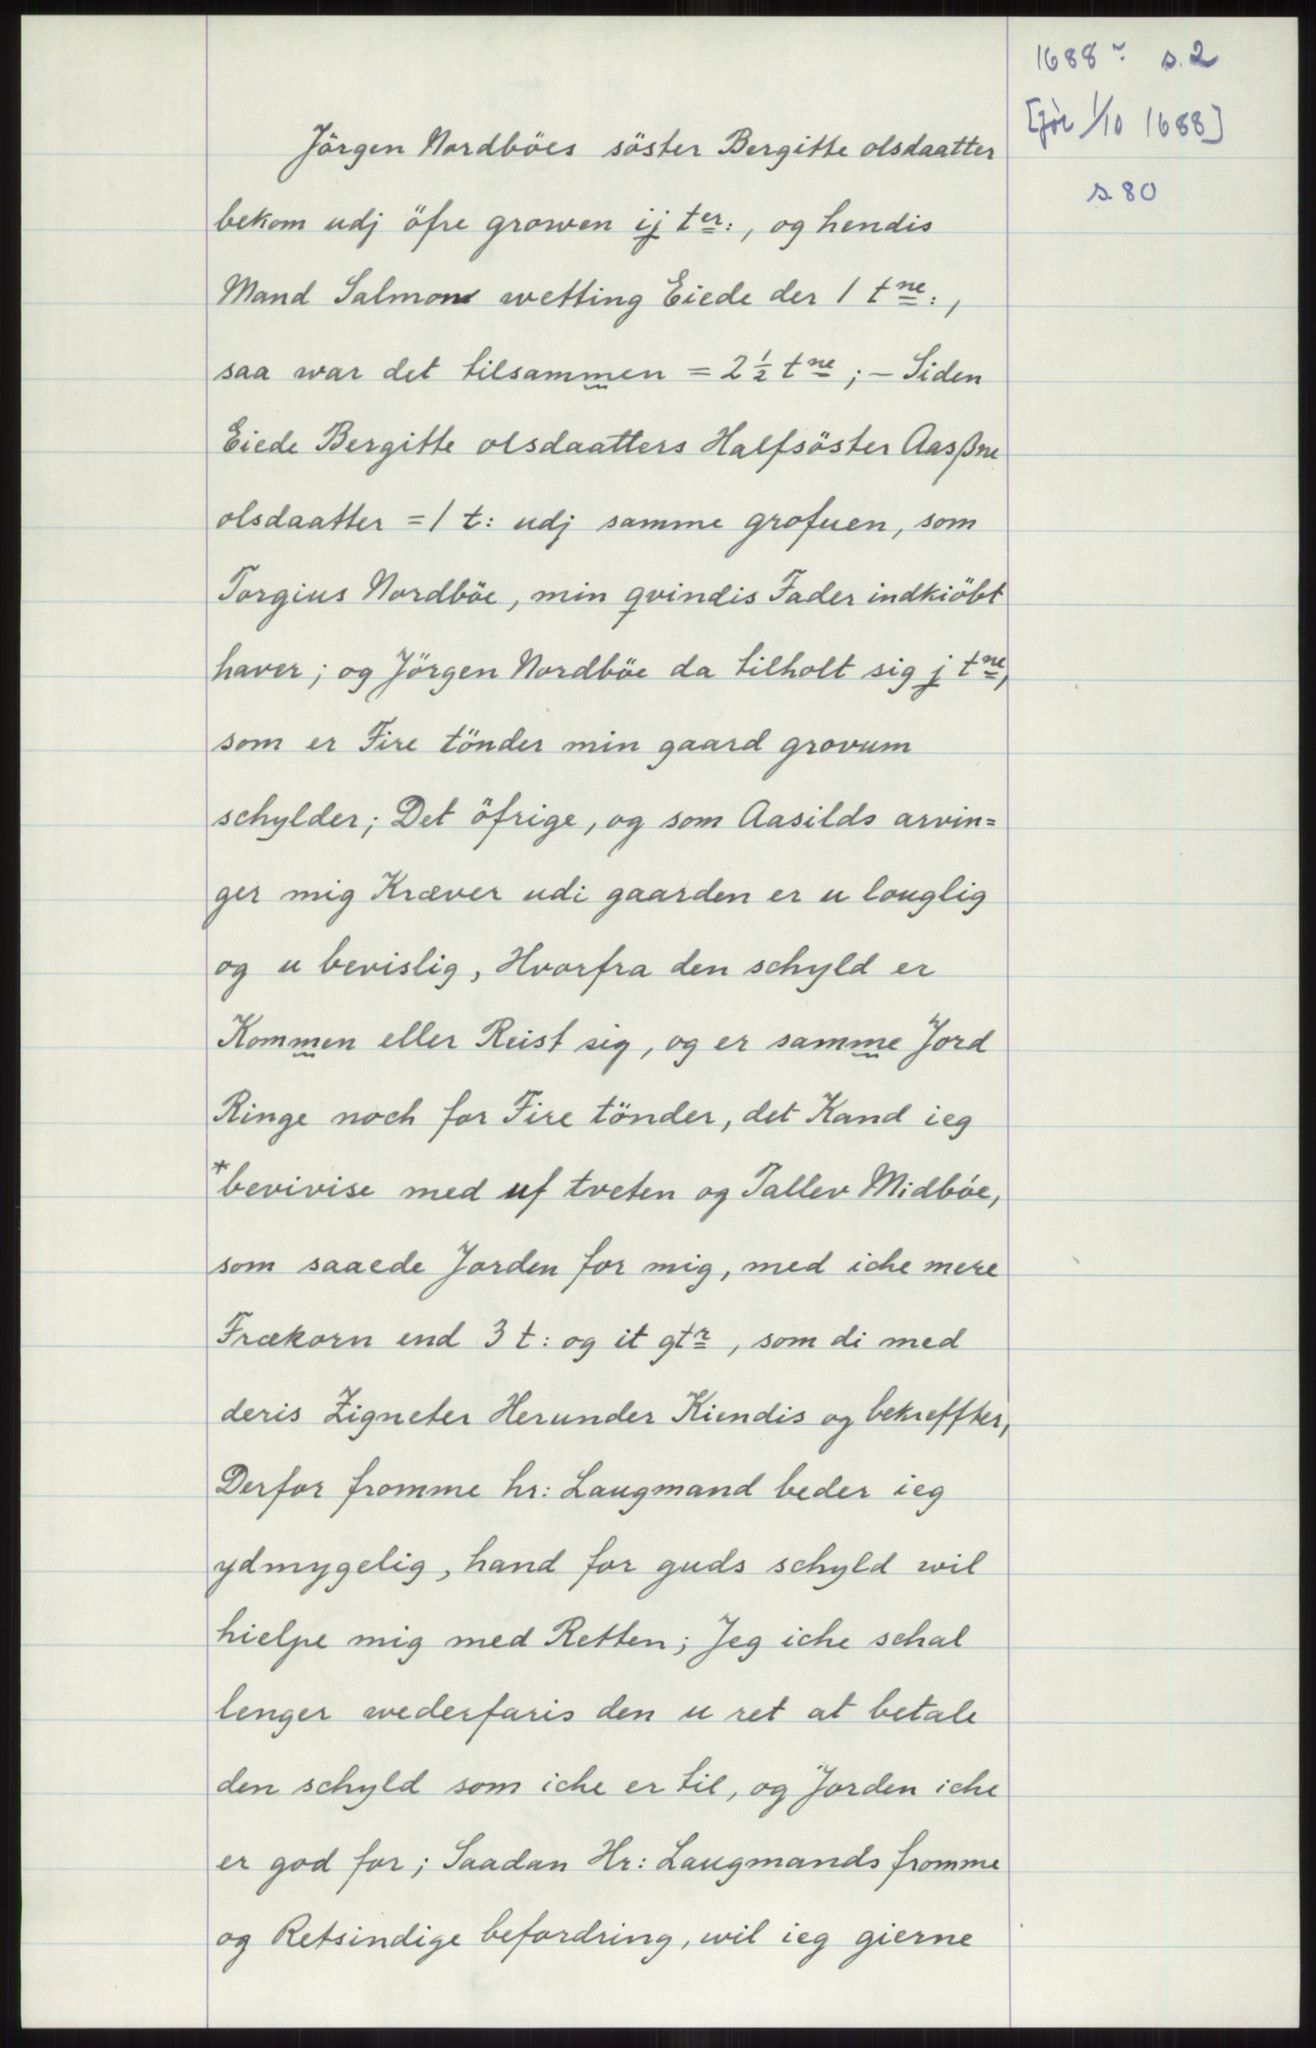 1688 s. 2
[før 1/10 1688]
s 80
Jörgen Nordböes söster Bergitte olsdaatter
bekom udj öfre growen ij ter:, og hendis
Mand Salmons wetting Eiede der 1 tne:,
saa war det tilsammen = 2 1/2 tne; – Siden
Eiede Bergitte olsdaatters Halfsöster Aasßne
olsdaatter = 1 t: udj samme grofuen, som
Torgius Nordböe, min qvindis Fader indkiöbt
haver; og Jörgen Nordböe da tilholt sig j tne,
som er Fire tönder min gaard grovum
schylder; Det öfrige, og som Aasilds arvin=
ger mig Kræver udi gaarden er u louglig
og u bevislig, Hvorfra den schyld er
Kommen eller Reist sig, og er samme Jord
Ringe noch for Fire tönder, det Kand ieg
*bevivise med uf tveten og Tallev Midböe,
som saaede Jorden for mig, med iche mere
Frækorn end 3 t: og it qtr, som di med
deris Zigneter Herunder Kiendis og bekreffter,
Derfor fromme hr: Laugmand beder ieg
ydmygelig, hand for guds schyld wil
hielpe mig med Retten; Jeg iche schal
lenger wederfaris den u ret at betale
den schyld som iche er til, og Jorden iche
er god for; Saadan Hr: Laugmands fromme
og Retsindige befordring, wil ieg gierne